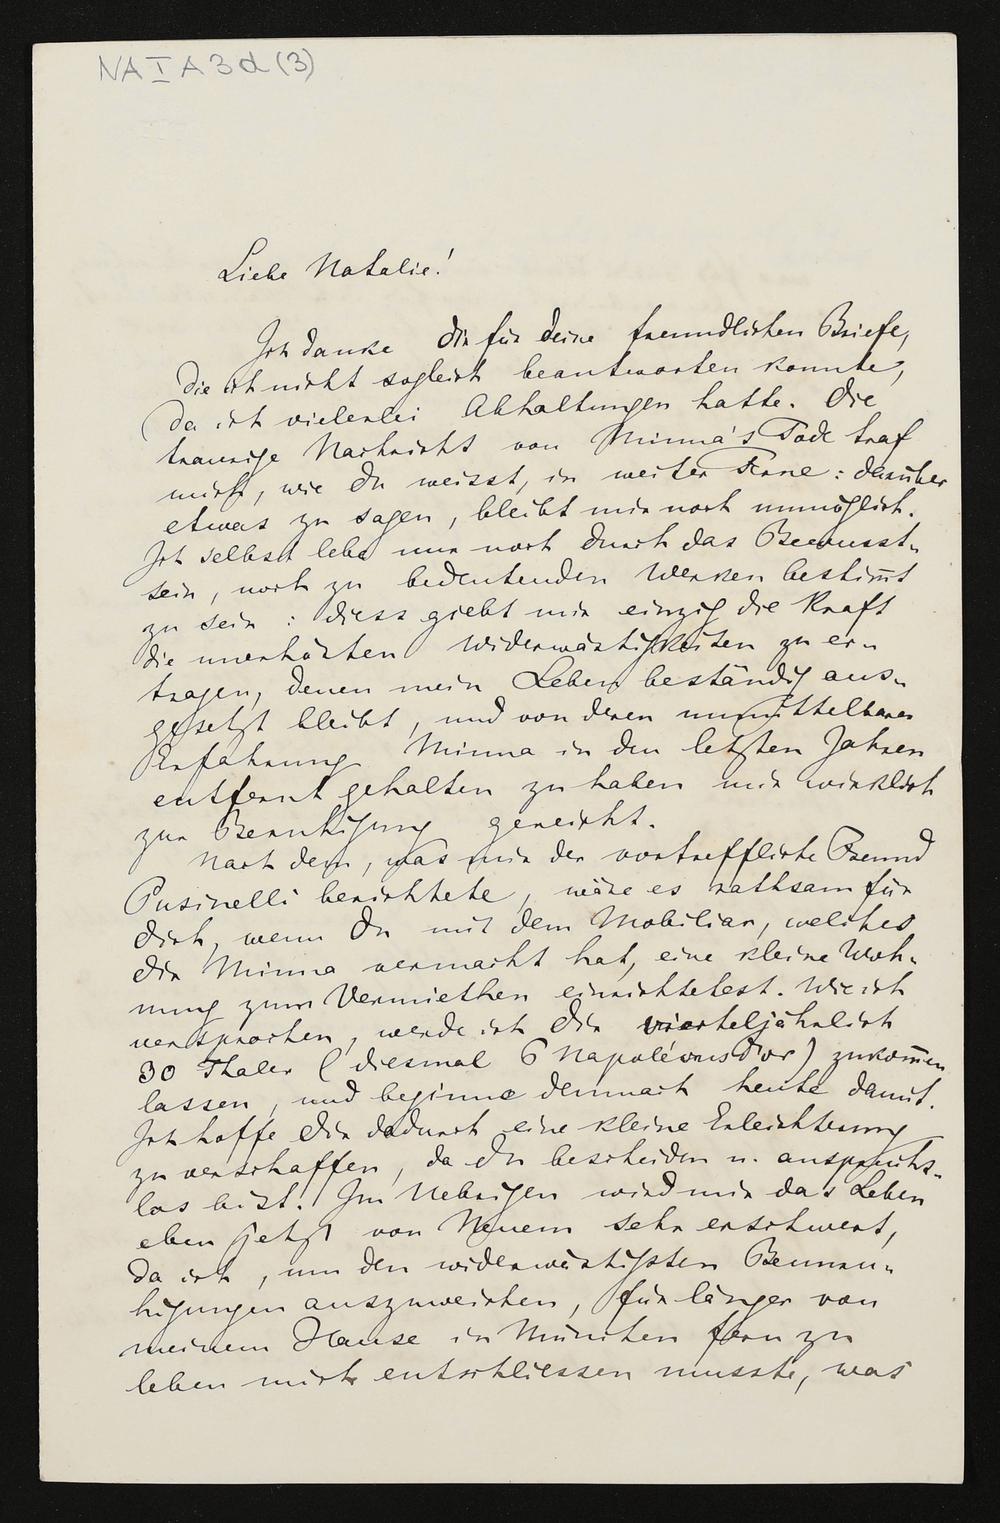 NA I A 3 d (3)
Liebe Natalie!
Ich danke Dir für Deine freundlichen Briefe,
die ich nicht sogleich beantworten konnte,
da ich vielerlei Abhaltungen hatte. Die
traurige Nachricht von Minna's Tode traf
mich, wie Du weisst, in weiter Ferne: darüber
etwas zu sagen, bleibt mir noch unmöglich.
Ich selbst lebe nur noch durch das Bewusst-
sein, noch zu bedeutenden Werken bestim̄t
zu sein: diess giebt mir einzig die Kraft
die unerhörten Widerwärtigkeiten zu er-
tragen, denen mein Leben beständig aus-
gesetzt bleibt, und von deren unmittelbarer
Erfahrung Minna in den letzten Jahren
entfernt gehalten zu haben mir wirklich
zur Beruhigung gereicht.
Nach dem, was mir der vortreffliche Freund
Pusinelli berichtete, wäre es rathsam für
Dich, wenn Du mit dem Mobiliar, welches
Dir Minna vermacht hat, eine kleine Woh-
nung zum Vermiethen einrichtetest. Wie ich
versprochen, werde ich Dir vierteljährlich
30 Thaler (diesmal 6 Napoléonsd'or) zukom̄en
lassen, und beginne demnach heute damit.
Ich hoffe Dir dadurch eine kleine Erleichterung
zu verschaffen, da Du bescheiden u. anspruchs-
los bist. Im Uebrigen wird mir das Leben
eben jetzt von Neuem sehr erschwert,
da ich, um den widerwärtigsten Beunru-
higungen auszuweichen, für länger von
meinem Hause in München fern zu
leben mich entschliessen musste, was